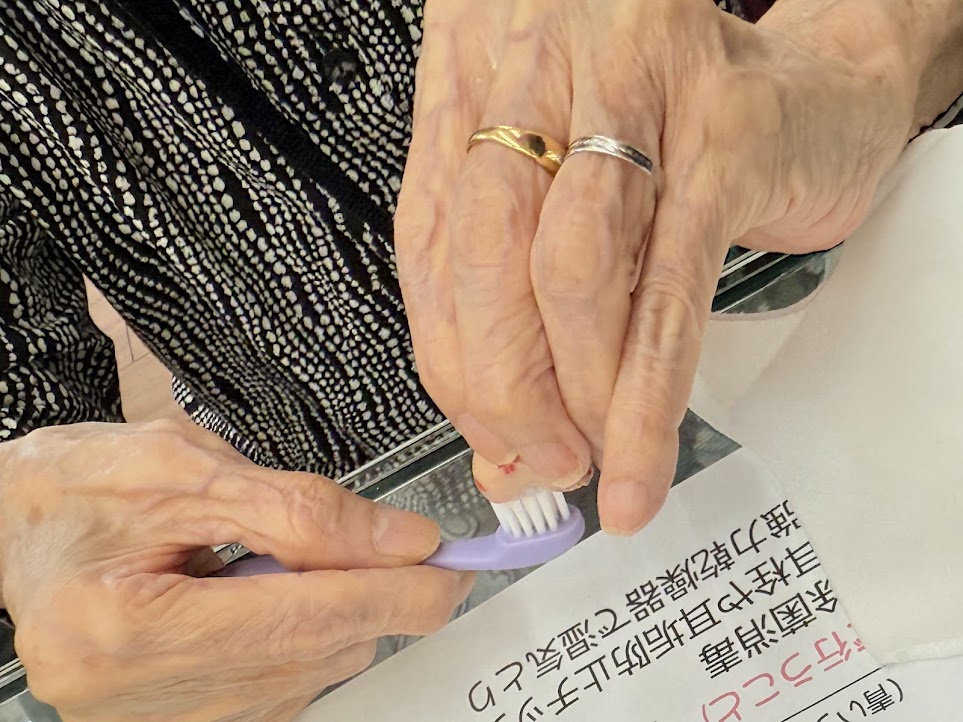 (青い
行うこと
除菌消毒
耳栓や耳垢防止チッ
強力乾燥器で湿気とり